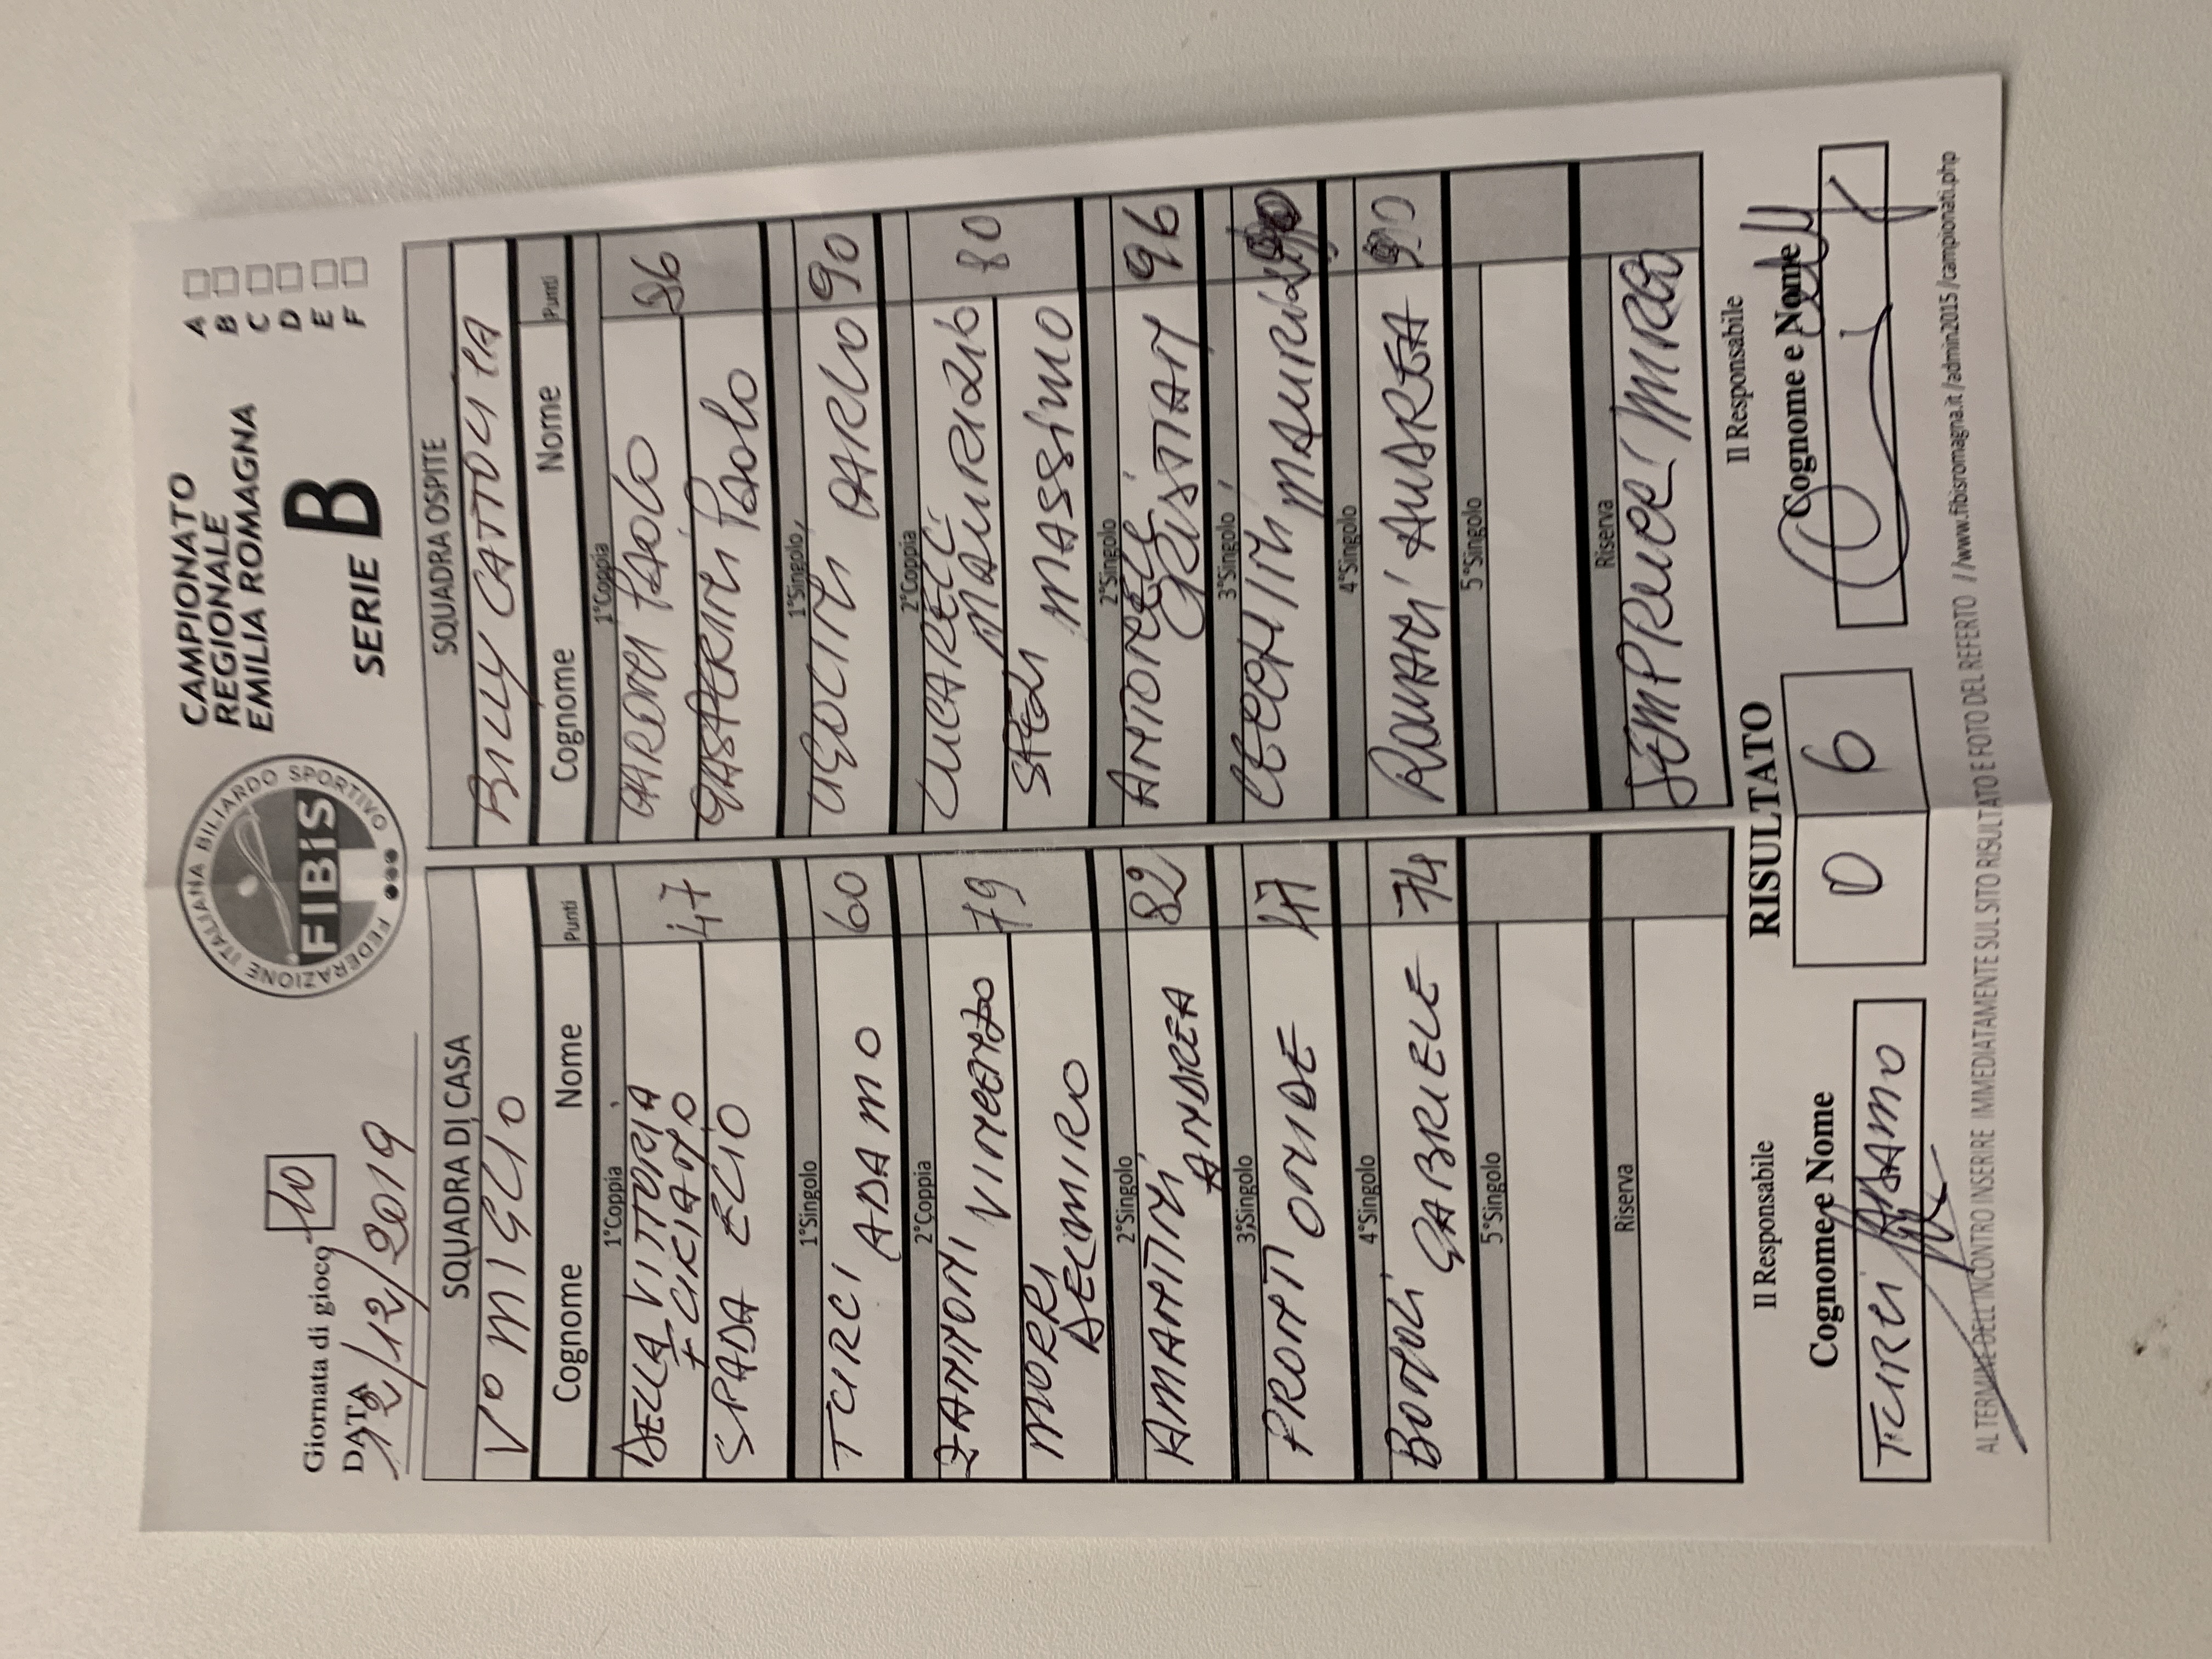 Giornata di gioco 10
DATA
12/12/2019
FEDERAZIONE ITALIANA BILIARDO SPORTIVO
FIBIS
CAMPIONATO
REGIONALE
EMILIA ROMAGNA
SERIE B
A
B
C
D
E
F
SQUADRA DI CASA
V° MIGLIO
Cognome Nome Punti
1°Coppia
DELLA VITTORIA
FELICIANO
47
SPADA ELIO
1°Singolo
TURCI ADAMO 60
2°Coppia
ZANNONI VINCENZO
79
MORRI
DELMIRO
2°Singolo
AMANTINI ANDREA 82
3°Singolo
PRONTI ONIDE 47
4°Singolo
BONOLI GABRIELE 74
5°Singolo
Riserva
SQUADRA OSPITE
BILLY CATTOLICA
Cognome Nome Punti
1°Coppia
PAOLO
GASPERINI PAOLO
1°Singolo
UGOLINI CARLO 90
2°Coppia
LUCARELLI MAURIZIO
80
MASSIMO
2°Singolo
ANTONELLI CRISTIAN 96
3°Singolo
CECCHINI MAURIZIO
4°Singolo
ROMANI ANDREA 90
5°Singolo
Riserva
SEMPRUCCI MIRCO
Il Responsabile
Cognome e Nome
TURCI ADAMO
RISULTATO
0 6
Il Responsabile
Cognome e Nome
AL TERMINE DELL'INCONTRO INSERIRE IMMEDIATAMENTE SUL SITO RISULTATO E FOTO DEL REFERTO //www.fibisromagna.it/admin2015/campionati.php